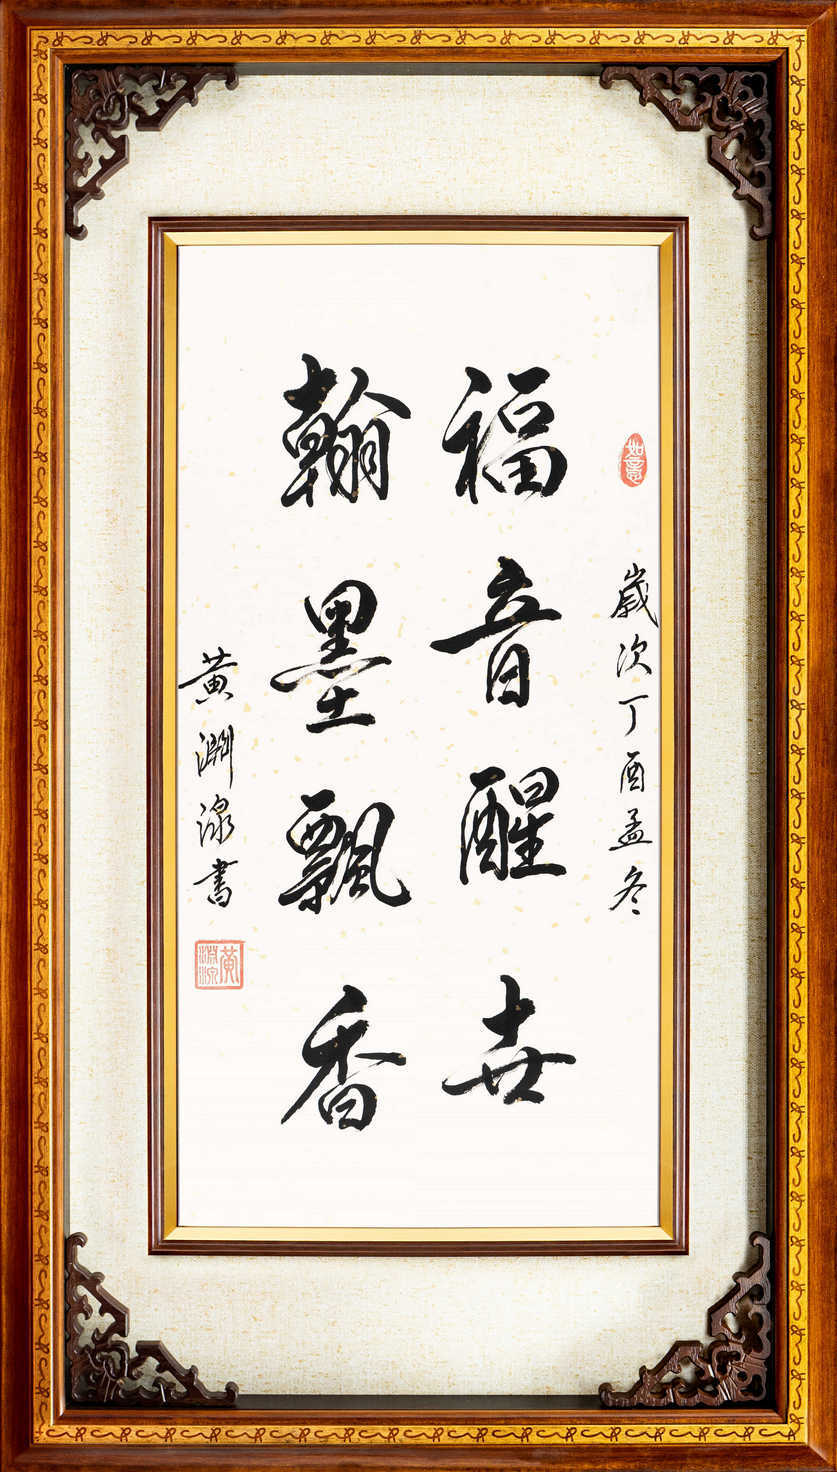 如意
歲次丁酉孟冬
福音醒世
翰墨飄香
黃淵源書
黃淵源